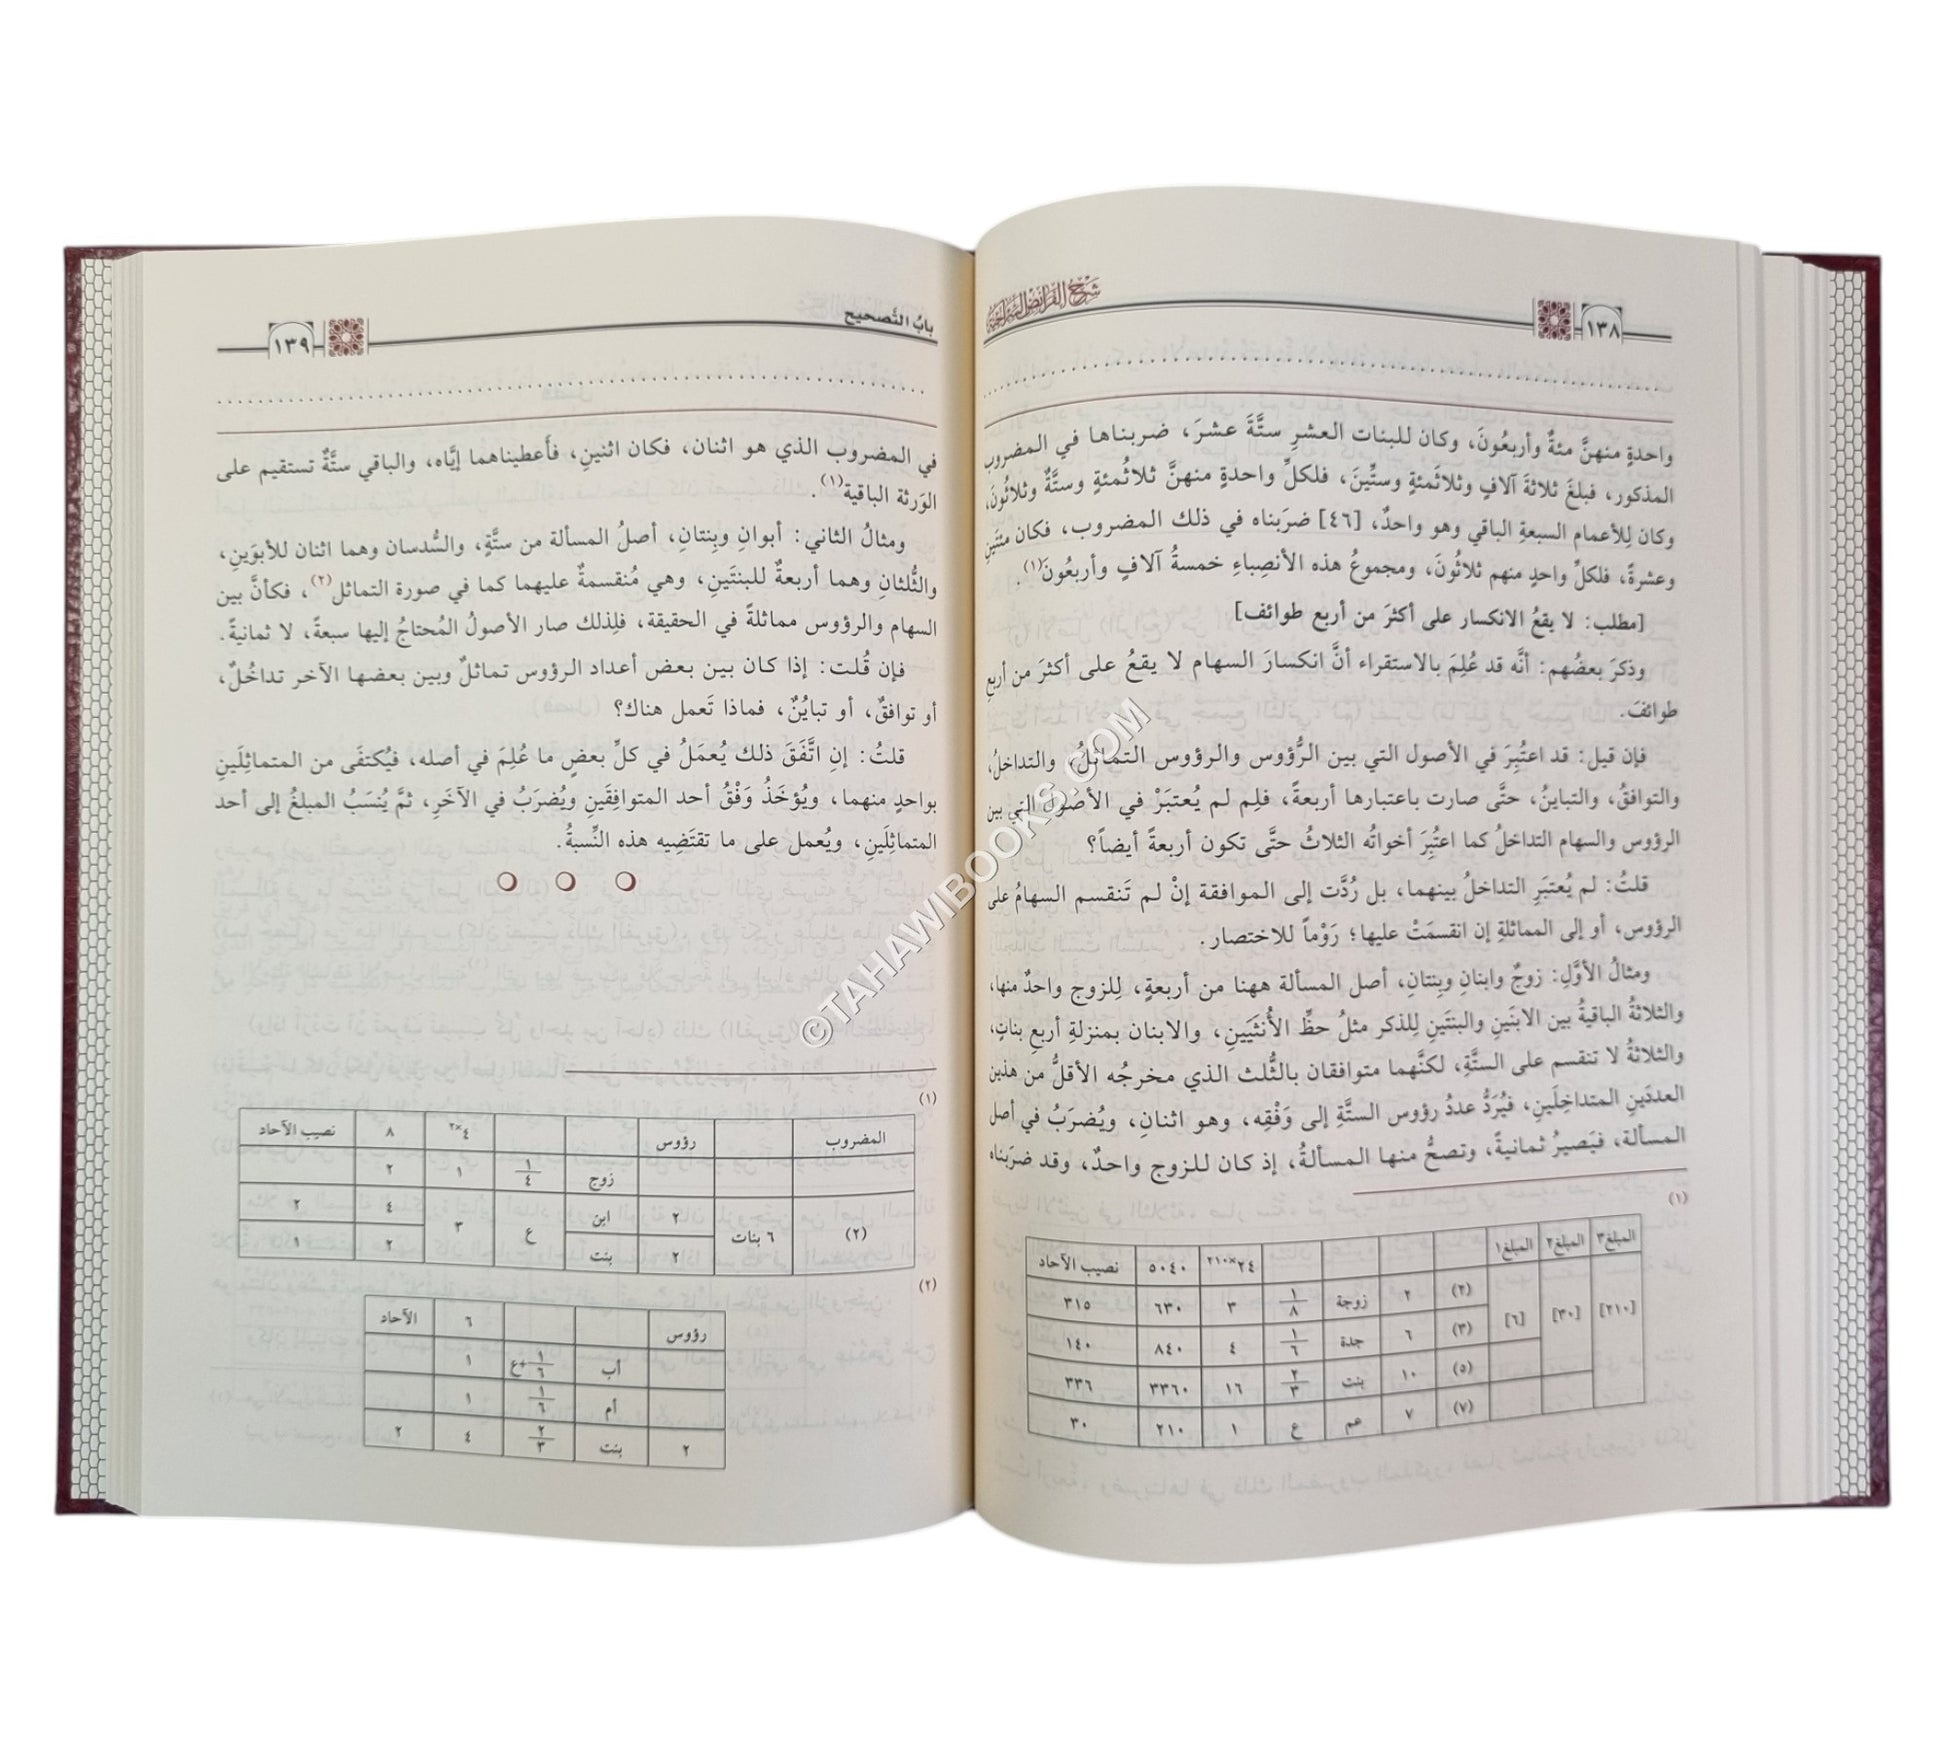 ١٣٨
شرح الفرائض السراجية
واحدةٍ منهنَّ مئةٌ وأربعُونَ، وكان للبنات العشرِ ستَّةَ عشرَ، ضربناها في المضروب
المذكور، فبلغَ ثلاثةَ آلافٍ وثلاثَمئةٍ وستِّينَ، فلكلِّ واحدةٍ منهنَّ ثلاثُمئةٍ وستَّةٌ وثلاثُونَ،
وكان لِلأعمام السبعةِ الباقي وهو واحدٌ، [٤٦] ضربَناه في ذلك المضروب، فكان مئتَينِ
وعشرةً، فلكلِّ واحدٍ منهم ثلاثُونَ، ومجموعُ هذه الأنصِباءِ خمسةُ آلافٍ وأربعُونَ(١).
[مطلب: لا يقعُ الانكسار على أكثرَ من أربع طوائف]
وذكرَ بعضُهم: أنَّه قد عُلِمَ بالاستقراء أنَّ انكسارَ السهام لا يقعُ على أكثرَ من أربعِ
طوائفَ.
فإن قيل: قد اعتُبِرَ في الأصول التي بين الرُّؤوس والرؤوس التماثلُ، والتداخلُ،
والتوافقُ، والتباينُ، حتَّى صارت باعتبارها أربعةً، فلِم لم يُعتبَرْ في الأصول التي بين
الرؤوس والسهام التداخلُ كما اعتُبِرَ أخواتُه الثلاثُ حتَّى تكون أربعةً أيضاً؟
قلتُ: لم يُعتبَرِ التداخلُ بينهما، بل رُدَّت إلى الموافقة إنْ لم تَنقسم السهامُ على
الرؤوس، أو إلى المماثلةِ إن انقسمَتْ عليها؛ رَوْماً للاختصار.
ومثالُ الأوَّلِ: زوجٌ وابنانِ وبِنتانِ، أصل المسألة ههنا من أربعةٍ، لِلزوج واحدٌ منها،
والثلاثةُ الباقيةُ بين الابنَينِ والبنتَينِ لِلذكر مثلُ حظِّ الأُنثَيَينِ، والابنان بمنزلةِ أربعِ بناتٍ،
والثلاثةُ لا تنقسم على الستَّةِ، لكنَّهما متوافقان بالثُّلث الذي مخرجُه الأقلُّ من هذين
العددَينِ المتداخِلَينِ، فيُرَدُّ عددُ رؤوس الستَّةِ إلى وَفْقِه، وهو اثنانِ، ويُضرَبُ في أصل
المسألة، فيَصيرُ ثمانيةً، وتصحُّ منها المسألةُ، إذ كان للزوج واحدٌ، وقد ضربَناه
(١)
المبلغ٣ المبلغ٢ المبلغ١ ٢٤×٢١٠ ٥٠٤٠ نصيب الآحاد
[٢١٠] [٣٠] [٦] (٢) ٢ زوجة ١/٨ ٣ ٦٣٠ ٣١٥
(٣) ٦ جدة ١/٦ ٤ ٨٤٠ ١٤٠
(٥) ١٠ بنت ٢/٣ ١٦ ٣٣٦٠ ٣٣٦
(٧) ٧ عم ع ١ ٢١٠ ٣٠
بابُ التَّصحيح
١٣٩
في المضروب الذي هو اثنان، فكان اثنينِ، فأَعطيناهما إيَّاه، والباقي ستَّةٌ تستقيم على
الوَرثة الباقية(١).
ومثالُ الثاني: أبوانِ وبِنتانِ، أصلُ المسألة من ستَّةٍ، والسُّدسان وهما اثنان للأبوَينِ،
والثُّلثانِ وهما أربعةٌ للبنتَينِ، وهي مُنقسمةٌ عليهما كما في صورة التماثل(٢)، فكأنَّ بين
السهام والرؤوس مماثلةً في الحقيقة، فلِذلك صار الأصولُ المُحتاجُ إليها سبعةً، لا ثمانيةً.
فإن قُلت: إذا كان بين بعض أعداد الرؤوس تماثلٌ وبين بعضها الآخر تداخُلٌ،
أو توافقٌ، أو تبايُنٌ، فماذا تَعمل هناك؟
قلتُ: إنِ اتَّفَقَ ذلك يُعمَلُ في كلِّ بعضٍ ما عُلِمَ في أصله، فيُكتفَى من المتماثِلَينِ
بواحدٍ منهما، ويُؤخَذُ وَفْقُ أحد المتوافِقَينِ ويُضرَبُ في الآخَرِ، ثمَّ يُنسَبُ المبلغُ إلى أحد
المتماثِلَينِ، ويُعمل على ما تقتَضِيه هذه النِّسبةُ.
(١)
المضروب رؤوس ٤×٢ ٨ نصيب الآحاد
زوج ١/٤ ١ ٢
(٢) ٦ بنات ٢ ابن ع ٣ ٤ ٢
٢ بنت ٢ ١
(٢)
رؤوس ٦ الآحاد
أب ١/٦+ع ١
أم ١/٦ ١
٢ بنت ٢/٣ ٤ ٢
©TAHAWIBOOKS.COM